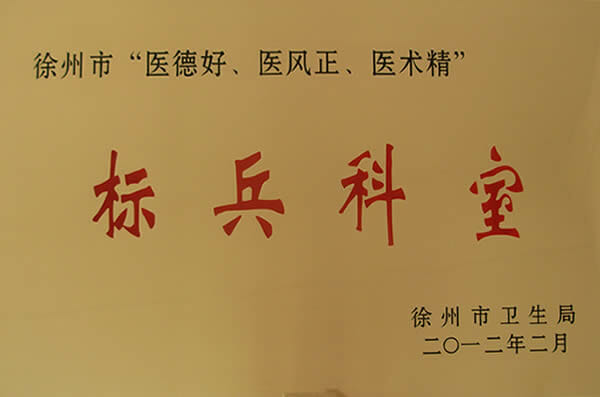 徐州市“医德好、医风正、医术精”
标兵科室
徐州市卫生局
二〇一二年二月